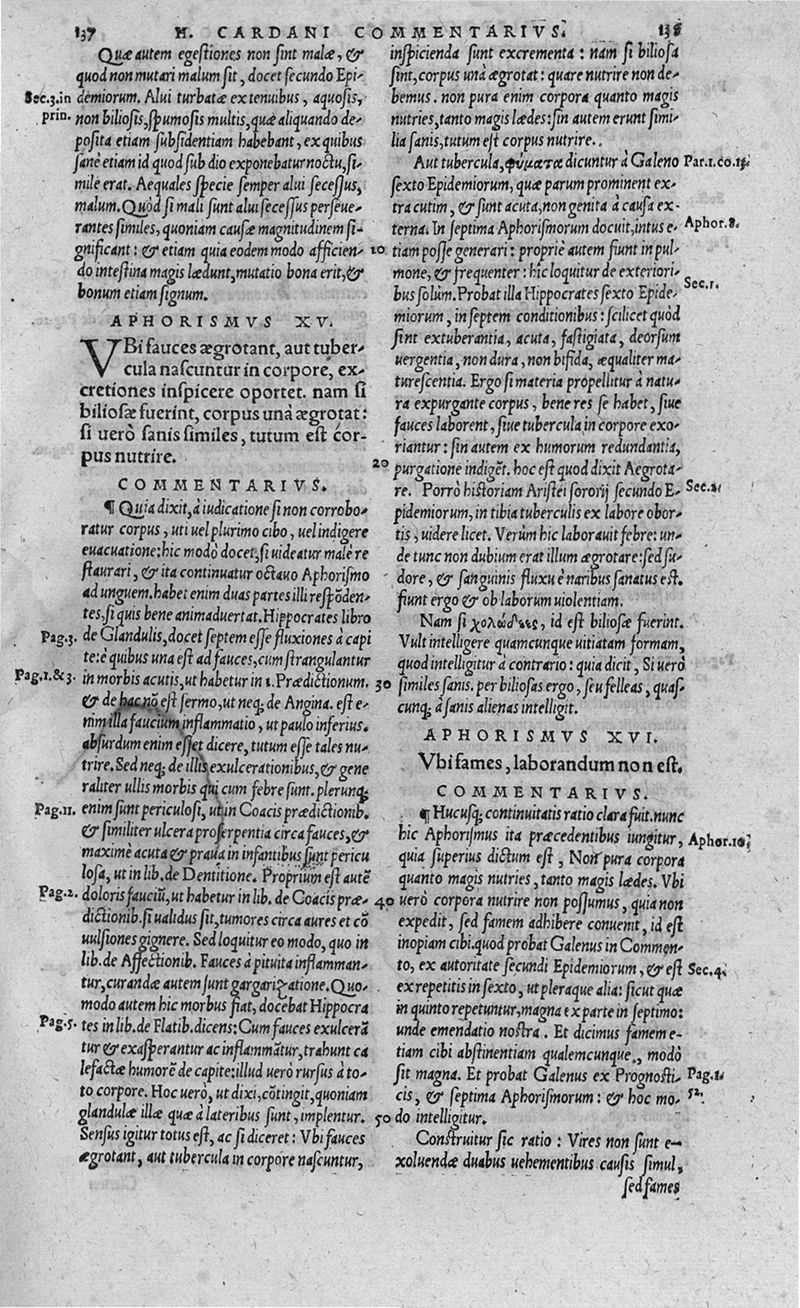 137 H. CARDANI COMMENTARIVS. 138
Quæ autem egestiones non sint malæ, &
quod non mutari malum sit, docet secundo Epi-
Sec.3.in demiorum. Alui turbatæ ex tenuibus, aquosis,
prin. non biliosis, spumosis multis, quæ aliquando de-
posita etiam subsidentiam habebant, ex quibus
sanè etiam id quod sub dio exponebatur noctu, si-
mile erat. Aequales specie semper alui secessus,
malum. Quòd si mali sunt alui secessus perseue-
rantes similes, quoniam causæ magnitudinem si-
gnificant: & etiam quia eodem modo afficien-
do intestina magis lædunt, mutatio bona erit, &
bonum etiam signum.
APHORISMVS XV.
VBi fauces ægrotant, aut tuber-
cula nascuntur in corpore, ex-
cretiones inspicere oportet. nam si
biliosæ fuerint, corpus unà ægrotat:
si uerò sanis similes, tutum est cor-
pus nutrire.
COMMENTARIVS.
¶ Quia dixit, à iudicatione si non corrobo-
ratur corpus, uti uel plurimo cibo, uel indigere
euacuatione: hic modò docet, si uideatur malè re
staurari, & ita continuatur octauo Aphorismo
ad unguem. habet enim duas partes illi respõden-
tes, si quis bene animaduertat. Hippocrates libro
Pag.3. de Glandulis, docet septem esse fluxiones à capi
te: è quibus una est ad fauces, cum strangulantur
Pag.1.&3. in morbis acutis, ut habetur in 1. Prædictionum.
& de hac nõ est sermo, ut neq; de Angina. est e-
nim illa faucium inflammatio, ut paulo inferius.
absurdum enim esset dicere, tutum esse tales nu-
trire. Sed neq; de illis exulcerationibus, & gene
raliter ullis morbis qui cum febre sunt. plerunq;
Pag.11. enim sunt periculosi, ut in Coacis prædictionib.
& similiter ulcera proserpentia circa fauces, &
maximè acuta & praua in infantibus sunt pericu
losa, ut in lib. de Dentitione. Proprium est autẽ
Pag.2. doloris fauciũ, ut habetur in lib. de Coacis præ-
dictionib. si ualidus sit, tumores circa aures et cõ
uulsiones gignere. Sed loquitur eo modo, quo in
lib. de Affectionib. Fauces à pituita inflamman-
tur, curandæ autem sunt gargarizatione. Quo-
modo autem hic morbus fiat, docebat Hippocra
Pag.5. tes in lib. de Flatib. dicens: Cum fauces exulcerã
tur & exasperantur ac inflammãtur, trahunt ca
lefactæ humorẽ de capite: illud uerò rursus à to-
to corpore. Hoc uerò, ut dixi, cõtingit, quoniam
glandulæ illæ quæ à lateribus sunt, implentur.
Sensus igitur totus est, ac si diceret: Vbi fauces
ægrotant, aut tubercula in corpore nascuntur,
inspicienda sunt excrementa: nam si biliosa
sint, corpus unà ægrotat: quare nutrire non de-
bemus. non pura enim corpora quanto magis
nutries, tanto magis lædes: sin autem erunt simi-
lia sanis, tutum est corpus nutrire.
Aut tubercula, φύματα dicuntur à Galeno Par.1.co.
sexto Epidemiorum, quæ parum prominent ex-
tra cutim, & sunt acuta, non genita à causa ex-
terna. In septima Aphorismorum docuit, intus e- Aphor.8.
10 tiam posse generari: propriè autem fiunt in pul-
mone, & frequenter: hic loquitur de exteriori-
bus solùm. Probat illa Hippocrates sexto Epide- Sec.1.
miorum, in septem conditionibus: scilicet quòd
sint extuberantia, acuta, fastigiata, deorsum
uergentia, non dura, non bifida, æqualiter ma-
turescentia. Ergo si materia propellitur à natu-
ra expurgante corpus, bene res se habet, siue
fauces laborent, siue tubercula in corpore exo-
riantur: sin autem ex humorum redundantia,
20 purgatione indigẽt. hoc est quod dixit Aegrota-
re. Porrò historiam Aristei sororij secundo E- Sec.2.
pidemiorum, in tibia tuberculis ex labore obor-
tis, uidere licet. Verùm hic laborauit febre: un-
de tunc non dubium erat illum ægrotare: sed su-
dore, & sanguinis fluxu è naribus sanatus est.
fiunt ergo & ob laborum uiolentiam.
Nam si χολώδεες, id est biliosæ fuerint.
Vult intelligere quamcunque uitiatam formam,
quod intelligitur à contrario: quia dicit, Si uerò
30 similes sanis. per biliosas ergo, seu felleas, quas-
cunq; à sanis alienas intelligit.
APHORISMVS XVI.
Vbi fames, laborandum non est.
COMMENTARIVS.
¶ Hucusq; continuitatis ratio clara fuit. nunc
hic Aphorismus ita præcedentibus iungitur, Aphor.10.
quia superius dictum est, Non pura corpora
quanto magis nutries, tanto magis lædes. Vbi
40 uerò corpora nutrire non possumus, quia non
expedit, sed famem adhibere conuenit, id est
inopiam cibi. quod probat Galenus in Commen-
to, ex autoritate secundi Epidemiorum, & est Sec.4.
ex repetitis in sexto, ut pleraque alia: sicut quæ
in quinto repetuntur, magna ex parte in septimo:
unde emendatio nostra. Et dicimus famem e-
tiam cibi abstinentiam qualemcunque, modò
sit magna. Et probat Galenus ex Prognosti- Pag.1.
cis, & septima Aphorismorum: & hoc mo- 52.
50 do intelligitur.
Construitur sic ratio: Vires non sunt e-
xoluendæ duabus uehementibus causis simul,
sed fames